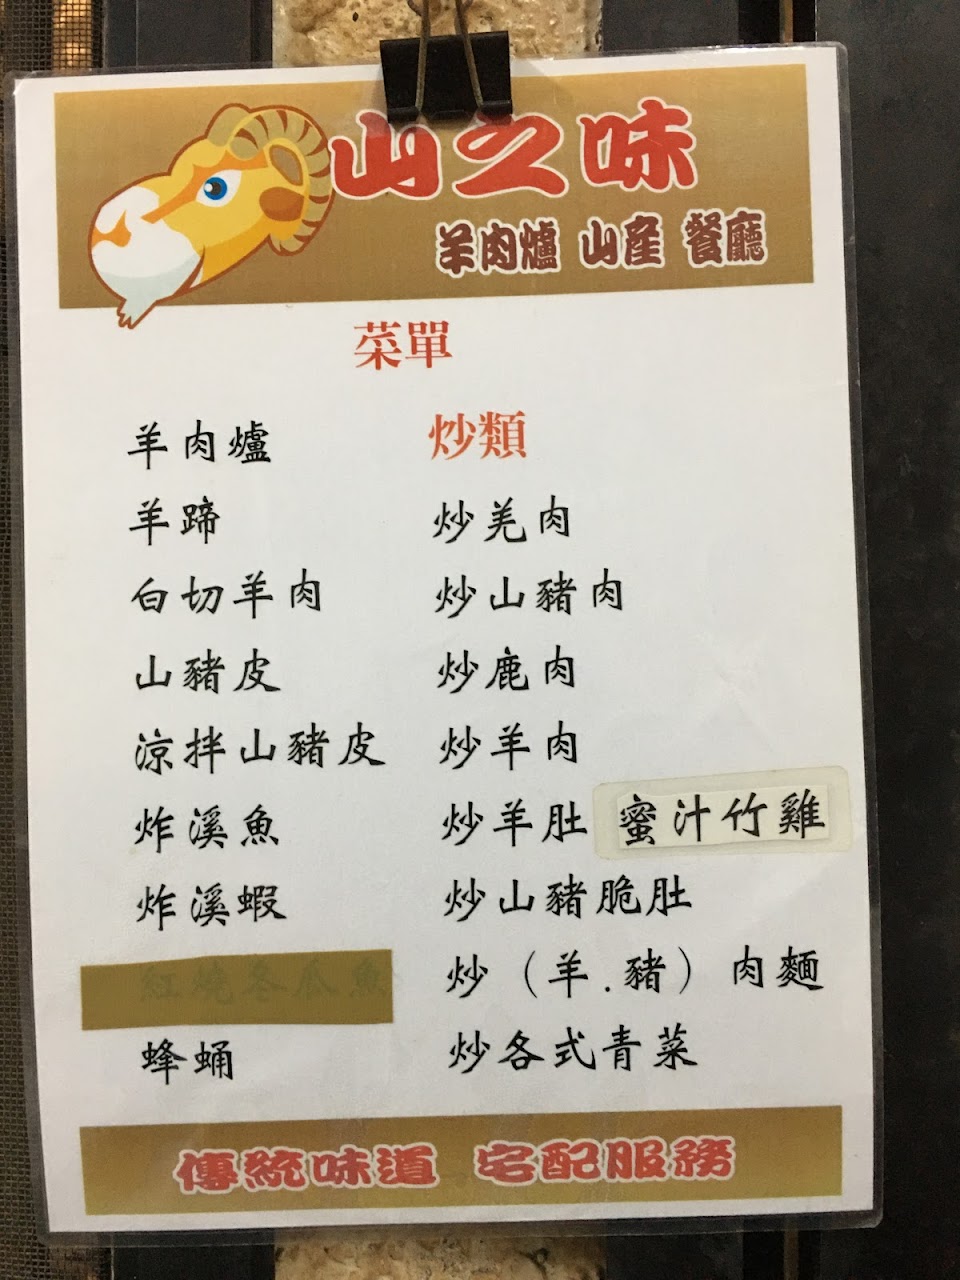 山之味
羊肉爐 山産 餐廳
菜單
羊肉爐
羊蹄
白切羊肉
山豬皮
涼拌山豬皮
炸溪魚
炸溪蝦
紅燒冬瓜魚
蜂蛹
炒類
炒羌肉
炒山豬肉
炒鹿肉
炒羊肉
炒羊肚 蜜汁竹雞
炒山豬脆肚
炒（羊.豬）肉麵
炒各式青菜
傳統味道 宅配服務